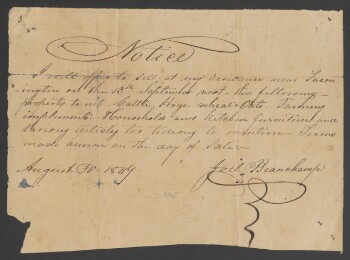 Notice
I will offer to sell at my residence near Farm
ington on the 13th September next the following
property to wit Cattle, Hogs wheat Oats Farming
implements Household and Kitchen furniture and
Various Articles too tedious to mention Terms
made known on the day of Sale
August 30 1849. Joel Beauchamp